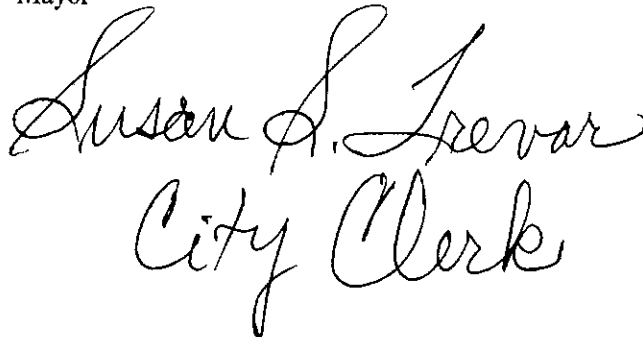 Mayor
Susan S. Trevar
City Clerk